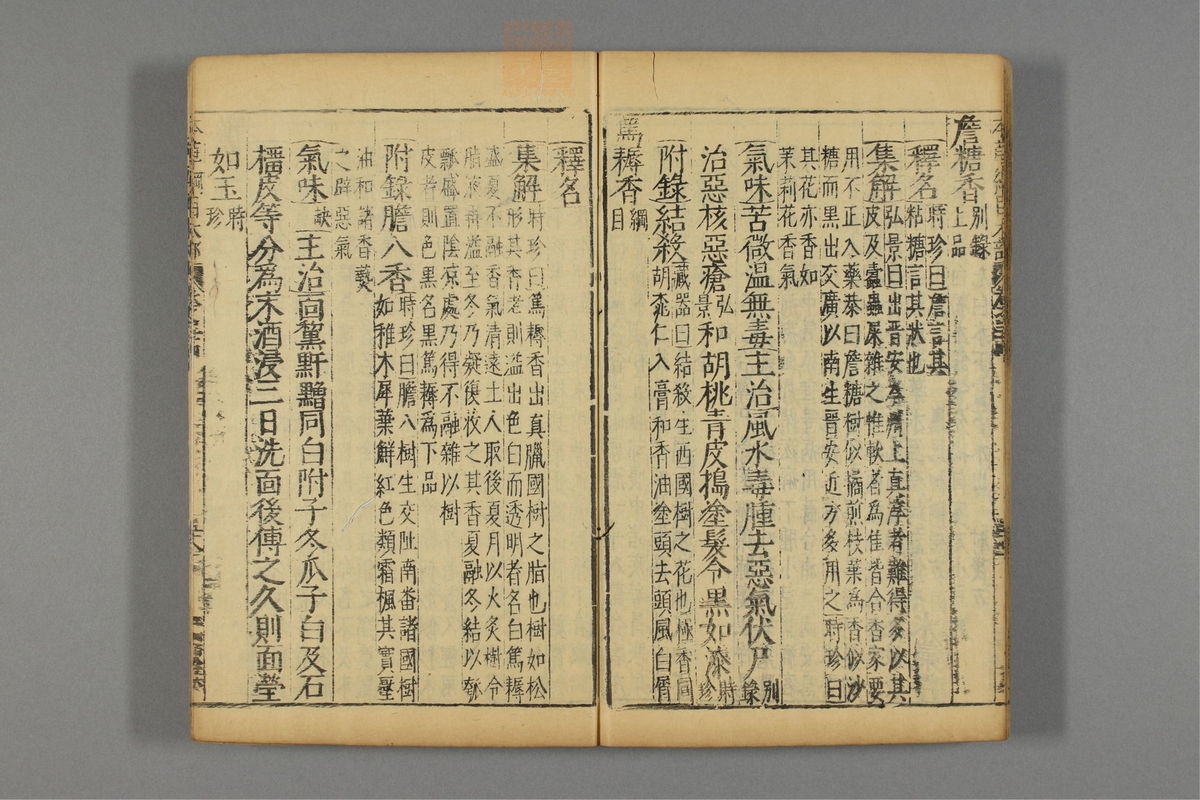 詹糖香別錄上品
釋名時珍曰詹言其
粘糖言其狀也
集解弘景曰出晉安岑州上真淳者難得多以其
皮及蠹蟲屎雜之惟軟者為佳皆合香家要
用不正入藥恭曰詹糖樹似橘煎枝葉為香似沙
糖而黑出交廣以南生晉安近方多用之時珍曰
其花亦香如
茉莉花香氣
氣味苦微溫無毒主治風水毒腫去惡氣伏尸別錄
治惡核惡瘡弘景和胡桃青皮搗塗髮令黑如漆時珍
附錄結殺藏器曰結殺生西國樹之花也極香同
胡桃仁入膏和香油塗頭去頭風白屑
篤耨香綱目
釋名
集解時珍曰篤耨香出真臘國樹之脂也樹如松
形其香老則溢出色白而透明者名白篤耨
盛夏不融香氣清遠土人取後夏月以火炙樹令
脂液再溢至冬乃凝復收之其香夏融冬結以瓠
瓢盛置陰涼處乃得不融雜以樹
皮者則色黑名黑篤耨為下品
附錄膽八香時珍曰膽八樹生交阯南番諸國樹
如稚木犀葉鮮紅色類霜楓其實壓
油和諸香爇
之辟惡氣
氣味缺主治面黧䵟黯同白附子冬瓜子白及石
榴皮等分為末酒浸三日洗面後傅之久則面瑩
如玉時珍